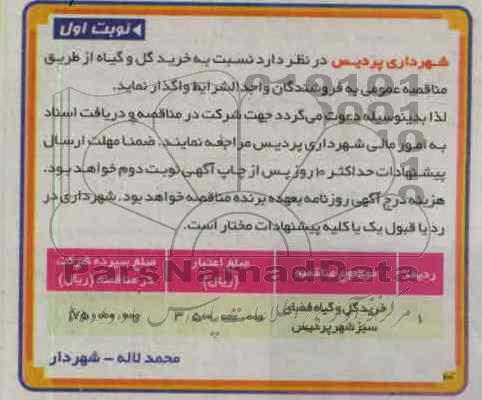 نوبت اول
شهرداری پردیس در نظر دارد نسبت به خرید گل و گیاه از طریق
مناقصه عمومی به فروشندگان واجد الشرایط واگذار نماید.
لذا بدینوسیله دعوت می گردد جهت شرکت در مناقصه و دریافت اسناد
به امور مالی شهرداری پردیس مراجعه نمایند. ضمنا مهلت ارسال
پیشنهادات حداکثر ۱۰ روز پس از چاپ آگهی نوبت دوم خواهد بود.
هزینه درج آگهی روزنامه بعهده برنده مناقصه خواهد بود. شهرداری در
رد یا قبول یک یا کلیه پیشنهادات مختار است.
ردیف موضوع مناقصه مبلغ اعتبار (ریال) مبلغ سپرده شرکت در مناقصه (ریال)
ParsNamadData
۱ خرید گل و گیاه فضای سبز شهر پردیس
محمد لاله - شهردار